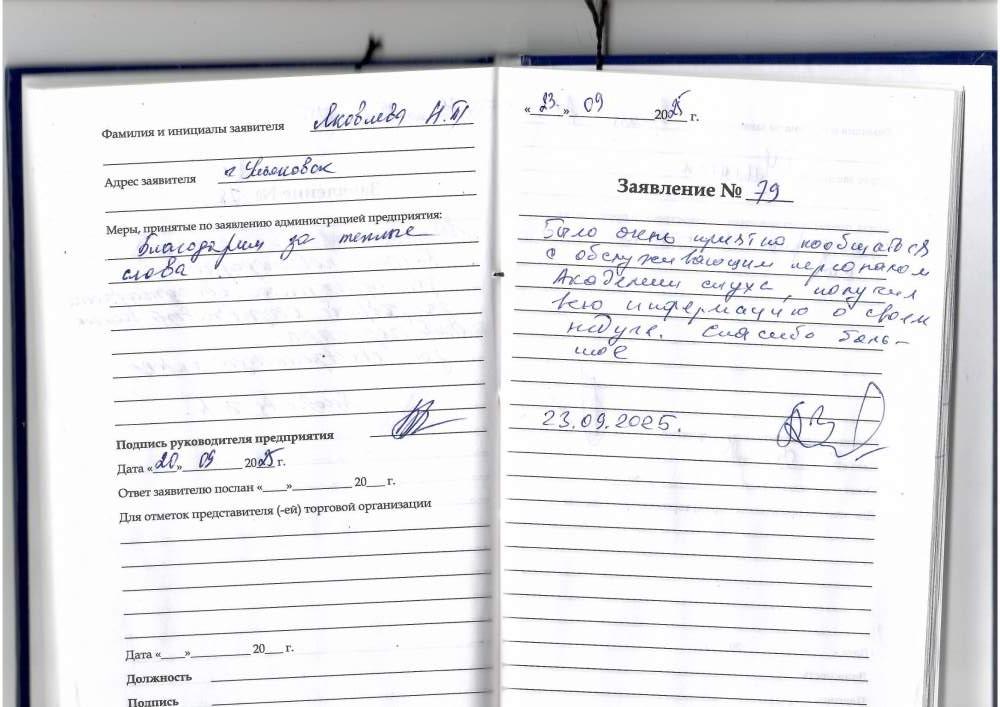 Фамилия и инициалы заявителя Яковлева Н.П
Адрес заявителя г Ульяновск
Меры, принятые по заявлению администрацией предприятия:
Благодарим за теплые
слова
Подпись руководителя предприятия
Дата «20» 09 2025 г.
Ответ заявителю послан «___»__________ 20___ г.
Для отметок представителя (-ей) торговой организации
Дата «____»__________ 20___ г.
Должность
Подпись
«23.» 09 2025 г.
Заявление № 79
Было очень приятно пообщаться
с обслуживающим персоналом
Академии слуха, получил
всю информацию о своем
недуге. Спасибо боль-
шое
23.09.2025.